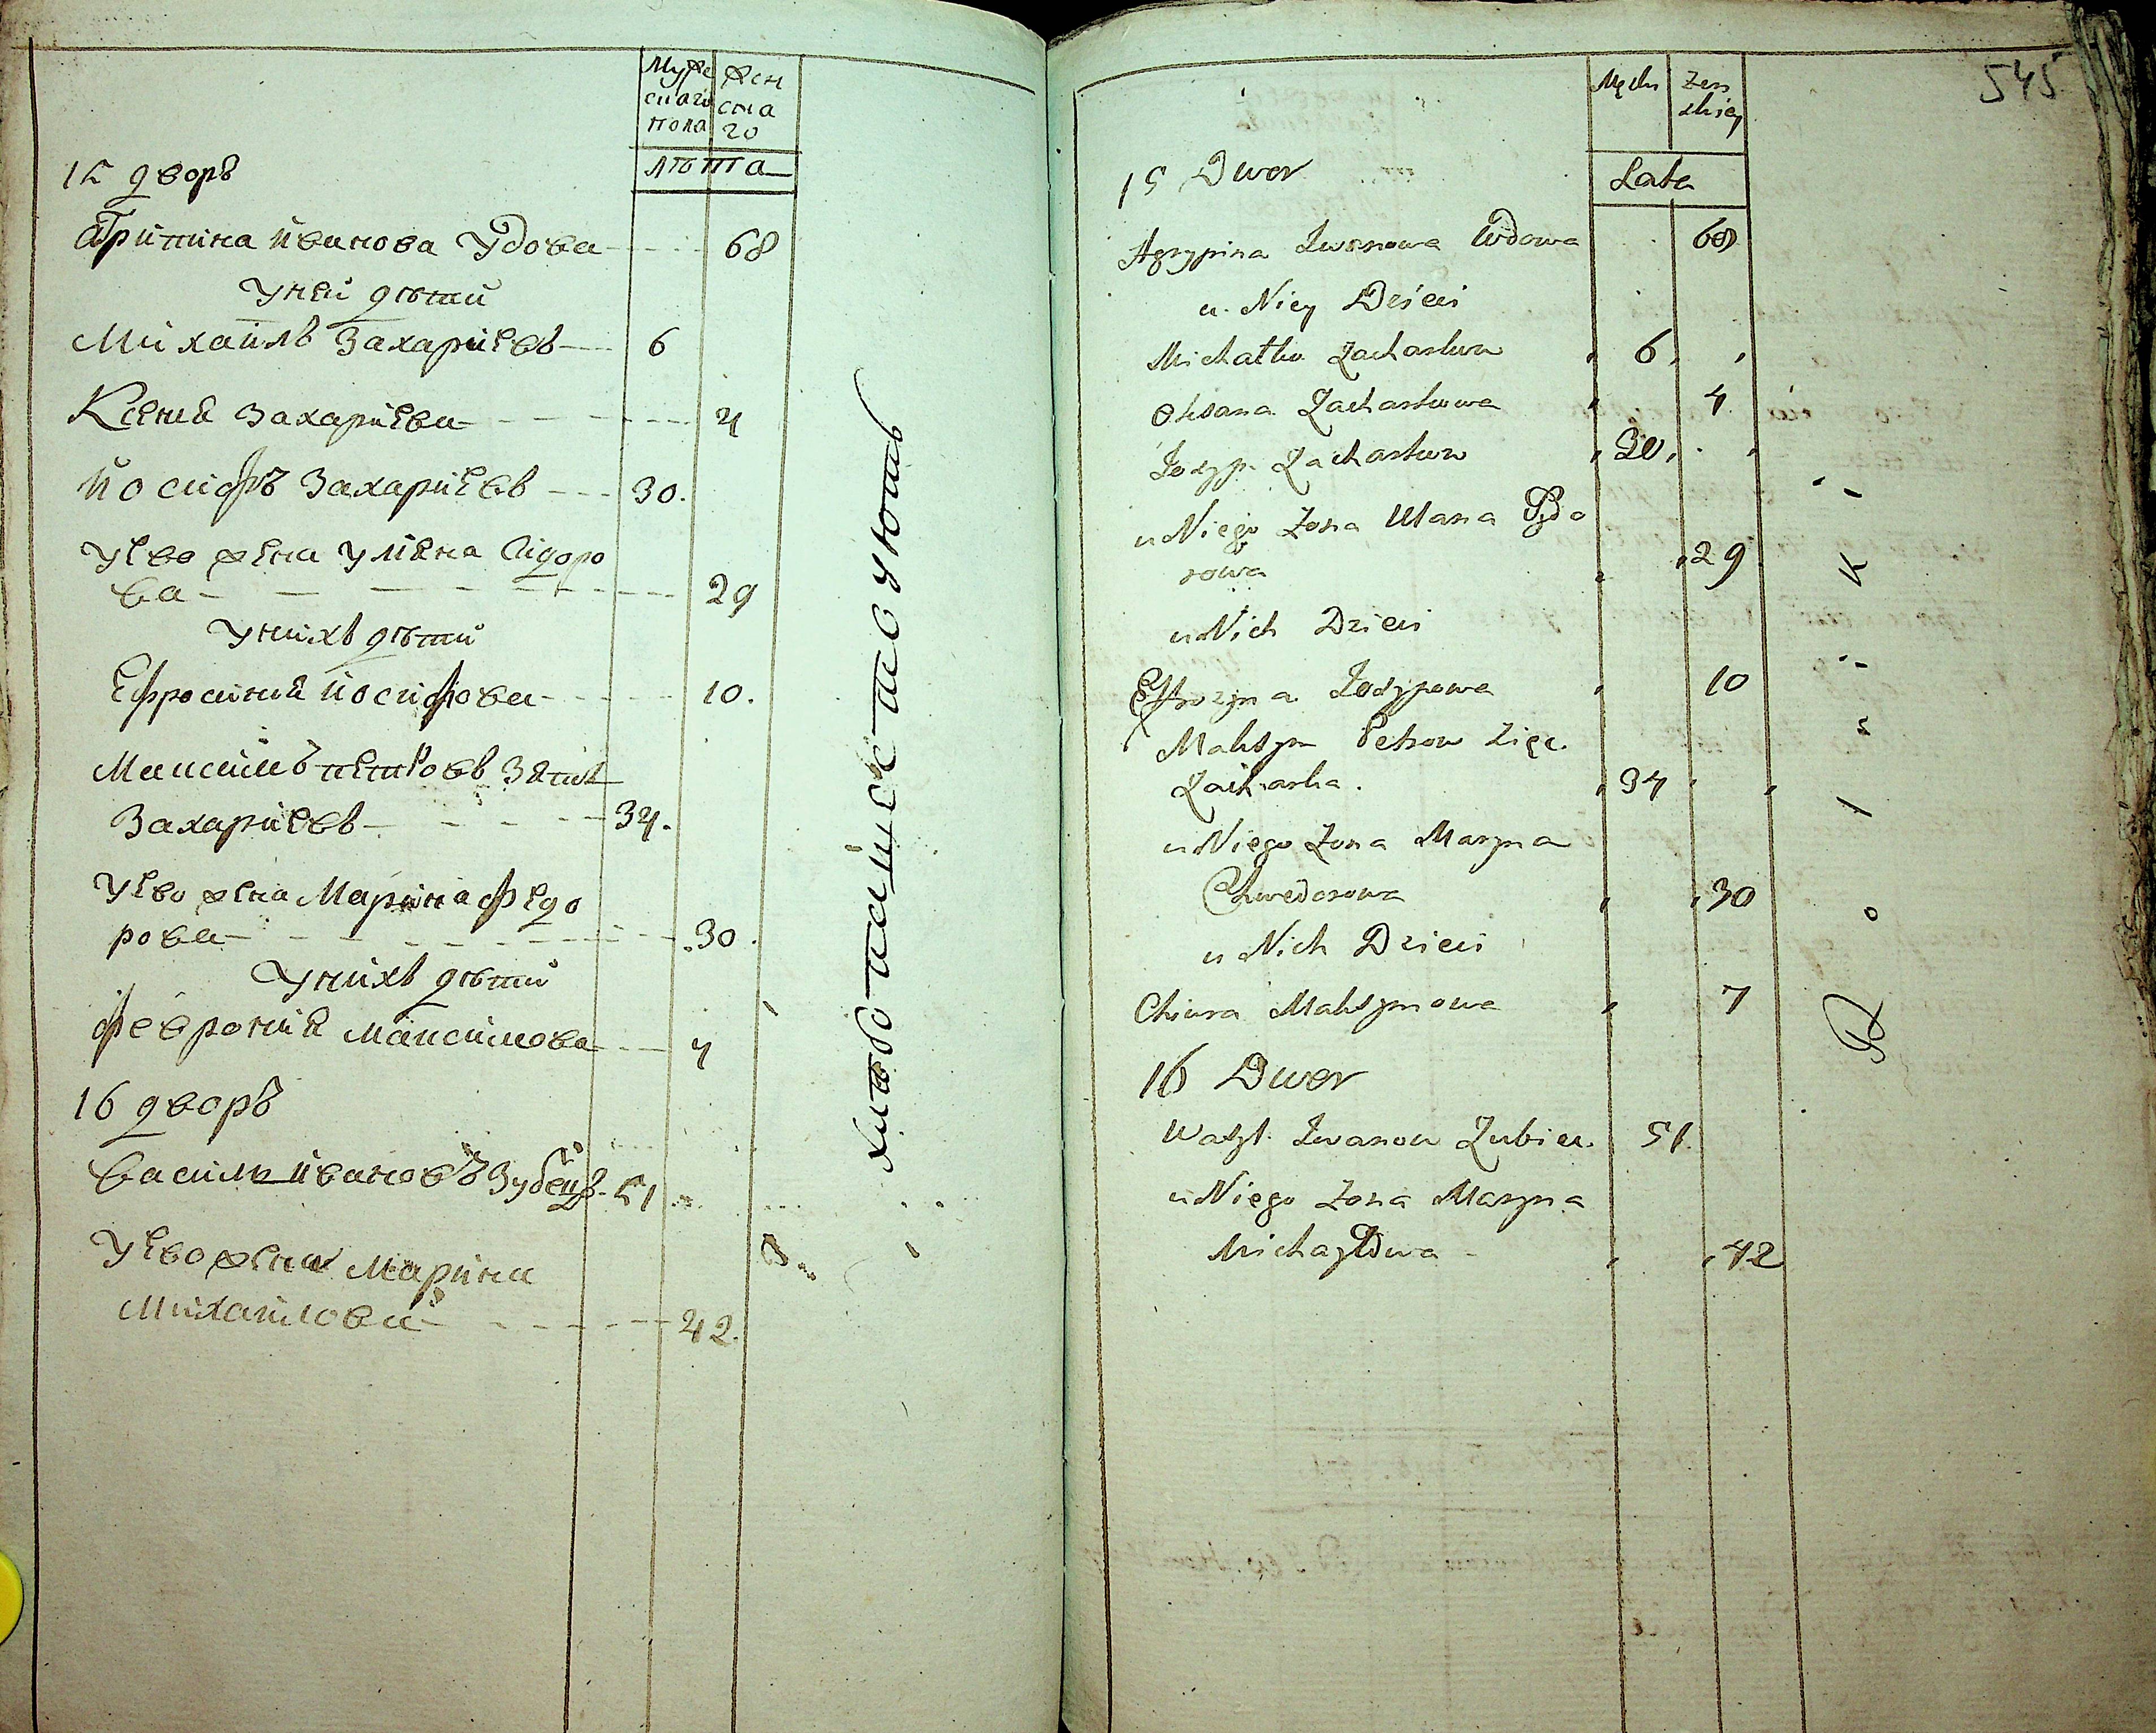 Муже
скаго
пола
жен
ска
го
лѣта
15 дворъ
Агрипина Иванова Удова 68
У ней дѣти
Михаилъ Захариевъ 6
Ксения Захариева 4
Иосифъ Захариевъ 30.
У ево жена Улияна Сидоро
ва 29
У нихъ дѣти
Ефросиния Иосифова 10.
Максимъ Петровъ Зять
Захариевъ 34.
У ево жена Марина Федо
рова 30.
У нихъ дѣти
Феврония Максимова 7
16 дворъ
Василь Ивановъ Зубецъ 51
У ево жена Марина
Михаилова 42.
хлѣбопашествуютъ
545
Męzkı
Zen
skiey
Lata
15 Dwor
Agrypina Iwanowa Wdowa 68
u Niey Dzieci
Michałko Zacharkow 6
Oksana Zacharkowa 4
Jozyp Zacharkow 30
u Niego Zona Ulana Sydo
rowa 29
u Nich Dzieci
Effrozyna Jozypowa 10
Maksym Petrow Zięc
Zacharka 34
u Niego Zona Maryna
Chwedorowa 30
u Nich Dzieci
Chiwra Maksymowa 7
16 Dwor
Wasyl Iwanow Zubiec 51
u Niego Zona Maryna
Michayłowa 42
Rolniki